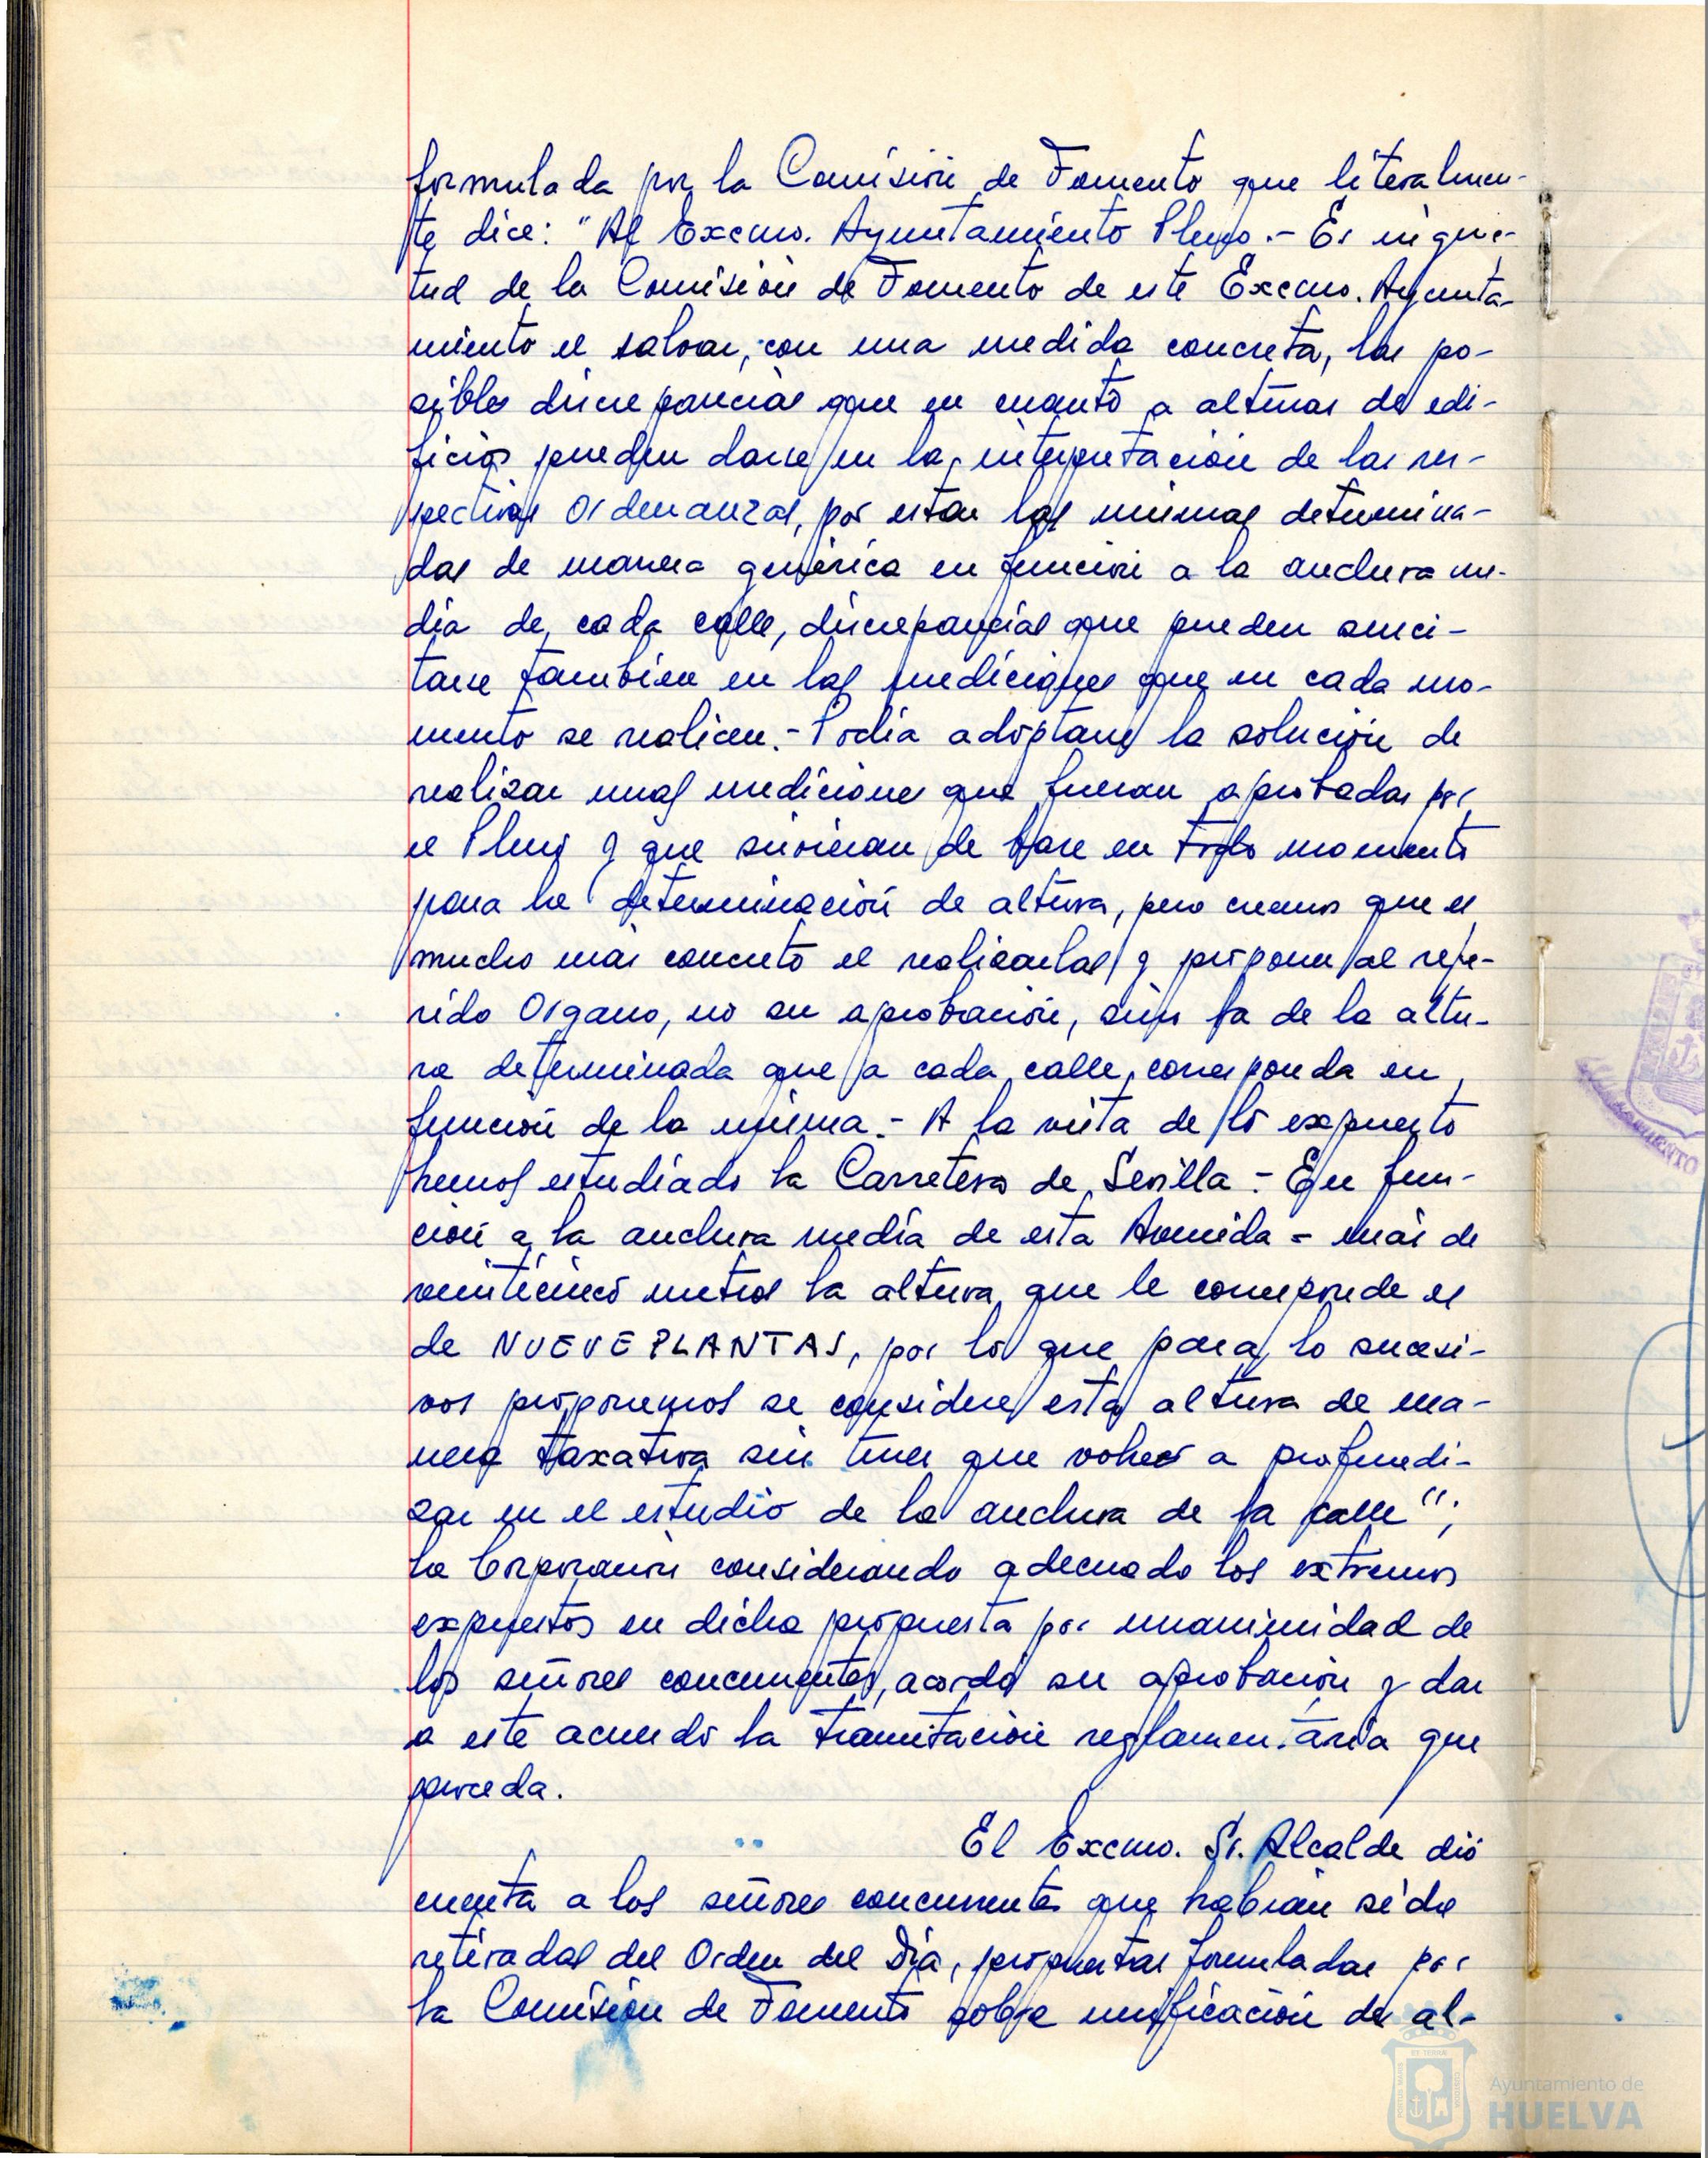 formulada por la Comisión de Fomento que literalmen-
te dice: "Al Excmo. Ayuntamiento Pleno.- Es inquie-
tud de la Comisión de Fomento de este Excmo. Ayunta-
miento el salvar, con una medida concreta, las po-
sibles discrepancias que en cuanto a alturas de edi-
ficios pueden darse en la interpretación de las res-
pectivas Ordenanzas, por estar las mismas determina-
das de manera genérica en función a la anchura me-
dia de cada calle, discrepancias que pueden susci-
tarse también en las mediciones que en cada mo-
mento se realicen.- Podía adoptarse la solución de
realizar unas mediciones que fueran aprobadas por
el Pleno y que sirvieran de base en todo momento
para la determinación de altura, pero creemos que es
mucho más concreto el realizarlas y proponer al refe-
rido Organo, no su aprobación, sino la de la altu-
ra determinada que a cada calle corresponda en
función de la misma.- A la vista de lo expuesto
hemos estudiado la Carretera de Sevilla.- En fun-
ción a la anchura media de esta Avenida - más de
veinticinco metros la altura que le corresponde es
de NUEVE PLANTAS, por lo que para lo sucesi-
vos proponemos se considere esta altura de ma-
nera taxativa sin tener que volver a profundi-
zar en el estudio de la anchura de la calle";
la Corporación considerando adecuado los extremos
expuestos en dicha propuesta por unanimidad de
los señores concurrentes, acordó su aprobación y dar
a este acuerdo la tramitación reglamentaria que
proceda.
El Excmo. Sr. Alcalde dió
cuenta a los señores concurrentes que habían sido
retiradas del Orden del Día, propuestas formuladas por
la Comisión de Fomento sobre unificación de al-
AYUNTAMIENTO
Ayuntamiento de
HUELVA